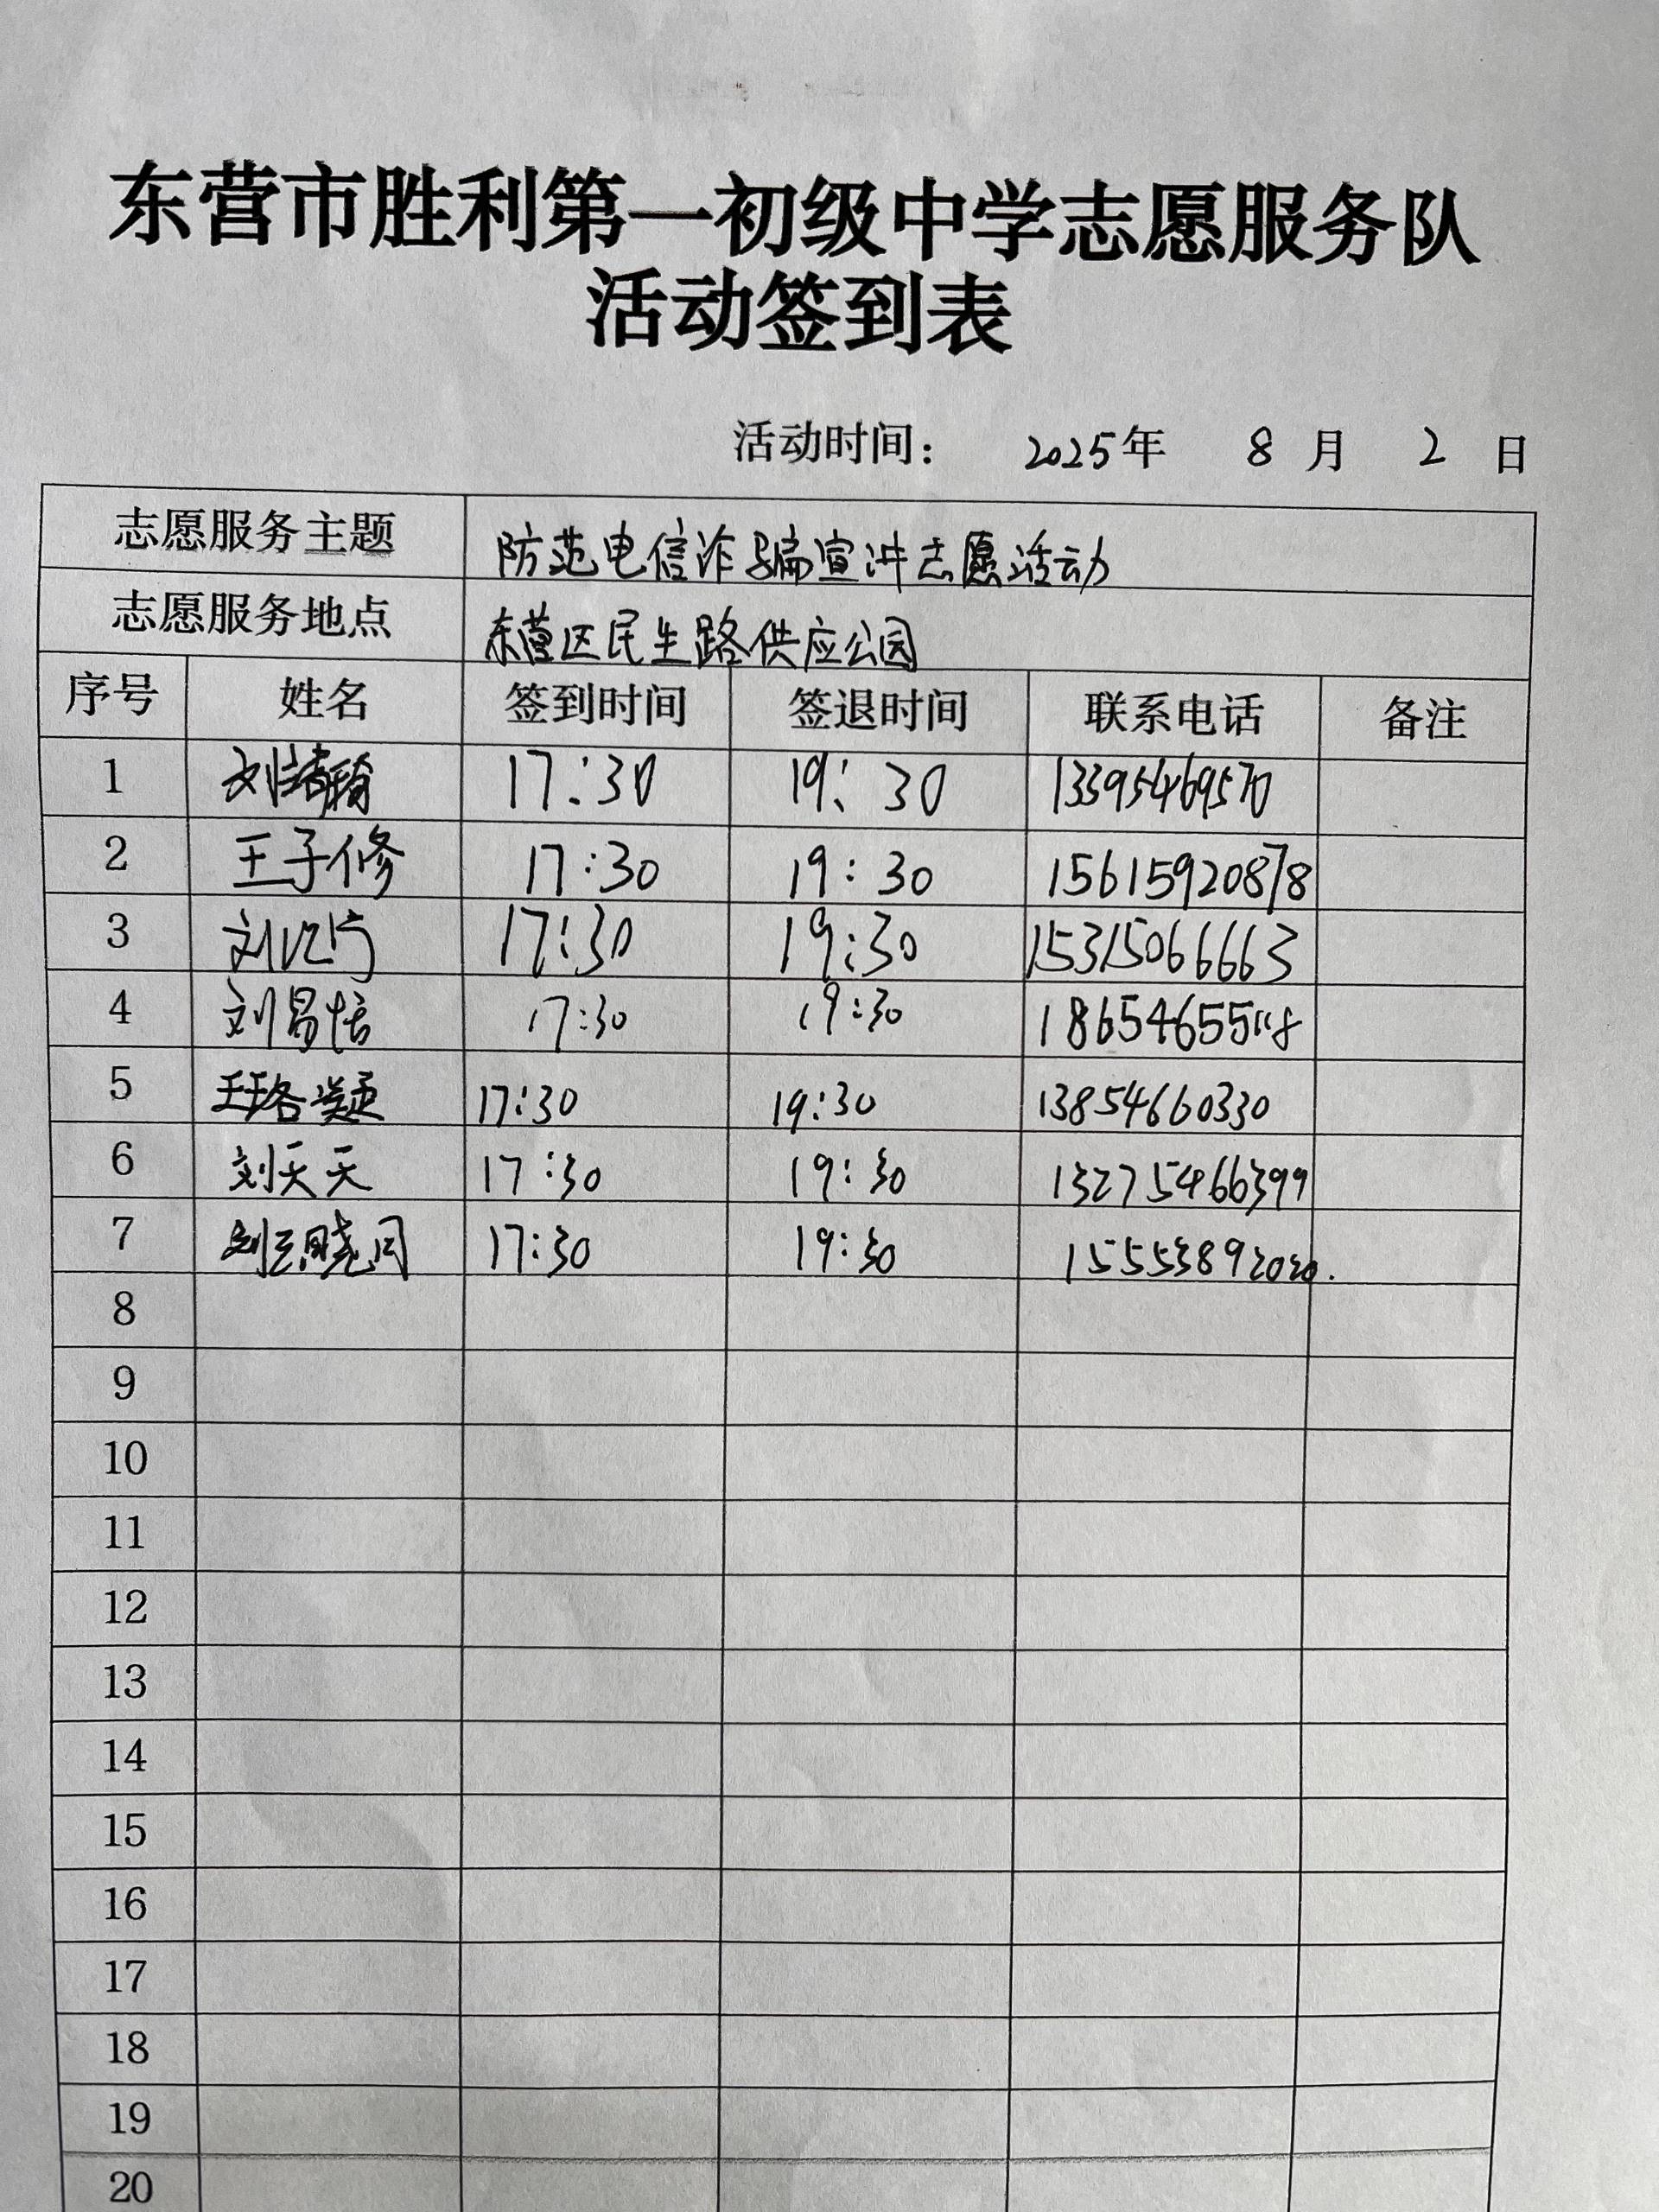 东营市胜利第一初级中学志愿服务队
活动签到表
活动时间： 2025年 8 月 2 日
志愿服务主题 防范电信诈骗宣讲志愿活动
志愿服务地点 东营区民生路供应公园
序号 姓名 签到时间 签退时间 联系电话 备注
1 刘 17:30 19:30 13395469570
2 王子修 17:30 19:30 15615920878
3 刘 17:30 19:30 15315066663
4 刘易恬 17:30 19:30 18654655118
5 王珞 17:30 19:30 13854660330
6 刘天天 17:30 19:30 13275466399
7 17:30 19:30 15553892020.
8
9
10
11
12
13
14
15
16
17
18
19
20